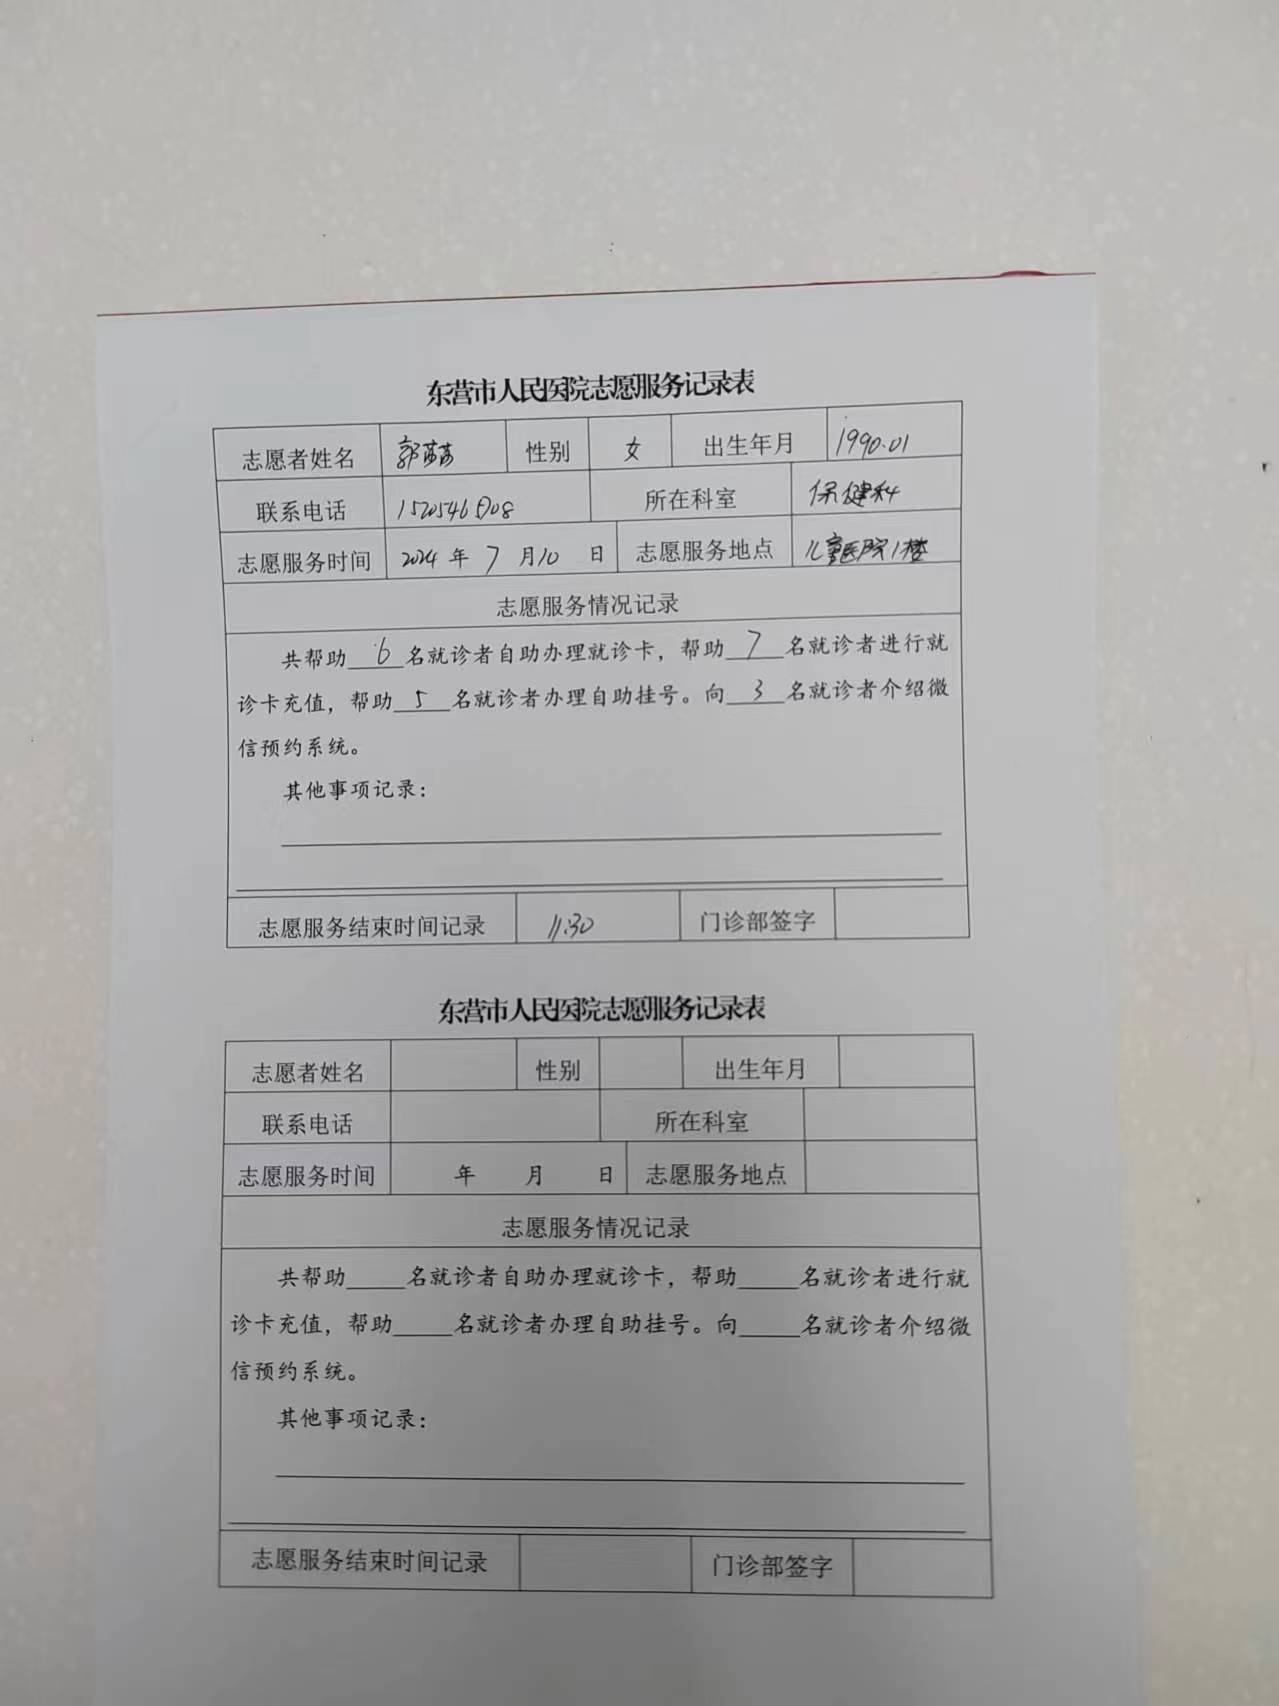 东营市人民医院志愿服务记录表
志愿者姓名 郭 性别 女 出生年月 1990.01
联系电话 所在科室 保健科
志愿服务时间 2024 年 7 月 10 日 志愿服务地点 儿童医院1楼
志愿服务情况记录
共帮助 6 名就诊者自助办理就诊卡，帮助 7 名就诊者进行就
诊卡充值，帮助 5 名就诊者办理自助挂号。向 3 名就诊者介绍微
信预约系统。
其他事项记录：
志愿服务结束时间记录 11:30 门诊部签字
东营市人民医院志愿服务记录表
志愿者姓名 性别 出生年月
联系电话 所在科室
志愿服务时间 年 月 日 志愿服务地点
志愿服务情况记录
共帮助_____名就诊者自助办理就诊卡，帮助_____名就诊者进行就
诊卡充值，帮助_____名就诊者办理自助挂号。向_____名就诊者介绍微
信预约系统。
其他事项记录：
志愿服务结束时间记录 门诊部签字